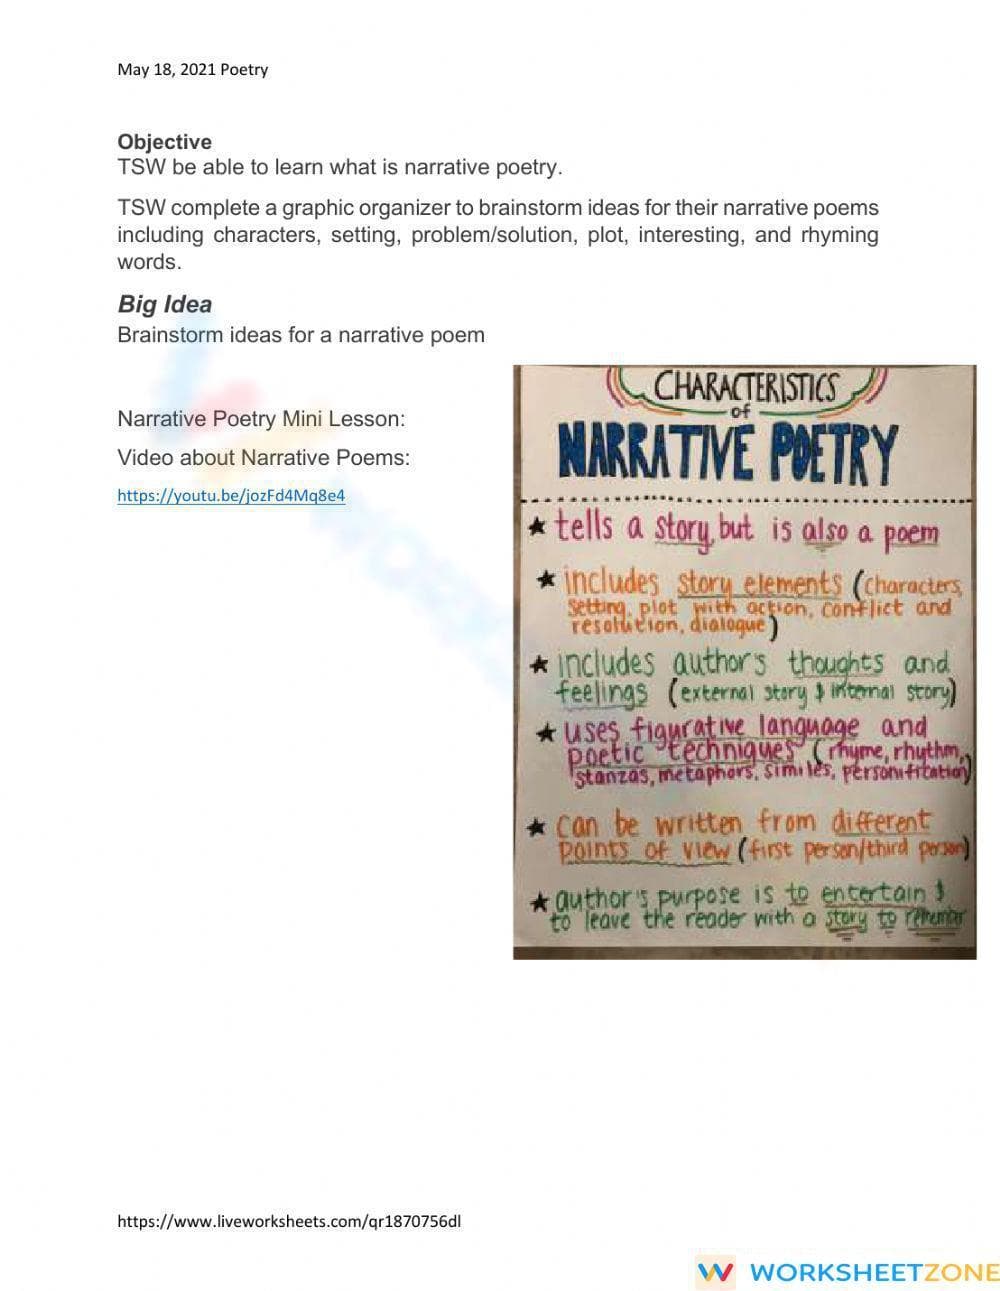 May 18, 2021 Poetry
Objective
TSW be able to learn what is narrative poetry.
TSW complete a graphic organizer to brainstorm ideas for their narrative poems
including characters, setting, problem/solution, plot, interesting, and rhyming
words.
Big Idea
Brainstorm ideas for a narrative poem
Narrative Poetry Mini Lesson:
Video about Narrative Poems:
https://youtu.be/jozFd4Mq8e4
CHARACTERISTICS
of
NARRATIVE POETRY
★ tells a story, but is also a poem
★ includes story elements (characters,
setting, plot with action, conflict and
resolution, dialogue)
★ includes author's thoughts and
feelings (external story & internal story)
★ uses figurative language and
poetic techniques (rhyme, rhythm,
stanzas, metaphors, similes, personification)
★ can be written from different
points of view (first person/third person)
★ author's purpose is to entertain &
to leave the reader with a story to remember
https://www.liveworksheets.com/qr1870756dl
WORKSHEETZONE